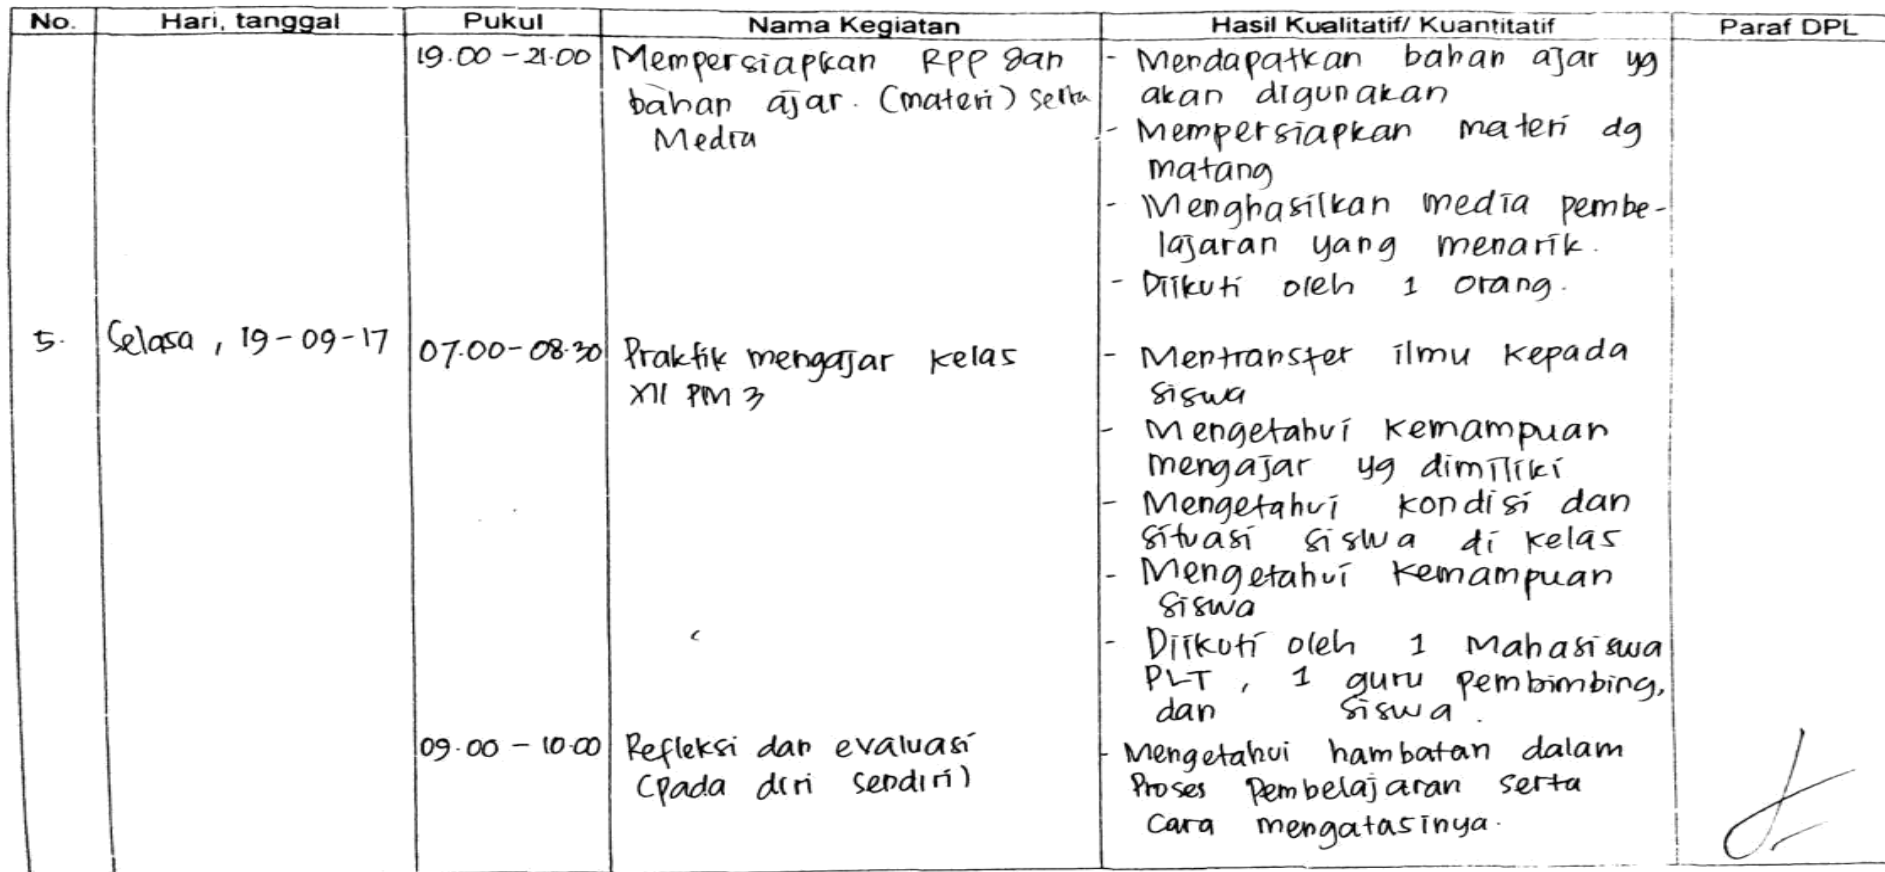 No. Hari, tanggal Pukul Nama Kegiatan Hasil Kualitatif/ Kuantitatif Paraf DPL
19.00 - 21.00 Mempersiapkan RPP dan - Mendapatkan bahan ajar yg
bahan ajar. (materi) serta akan digunakan
Media - Mempersiapkan materi dg
matang
- Menghasilkan media pembe-
lajaran yang menarik.
- Diikuti oleh 1 orang.
5. Selasa, 19-09-17 07.00-08.30 Praktik mengajar kelas - Mentransfer ilmu kepada
XII PM 3 siswa
- Mengetahui kemampuan
mengajar yg dimiliki
- Mengetahui kondisi dan
situasi siswa di kelas
- Mengetahui kemampuan
siswa
- Diikuti oleh 1 Mahasiswa
PLT, 1 guru pembimbing,
dan siswa.
09.00 - 10.00 Refleksi dan evaluasi - Mengetahui hambatan dalam
(pada diri sendiri) proses pembelajaran serta
cara mengatasinya.